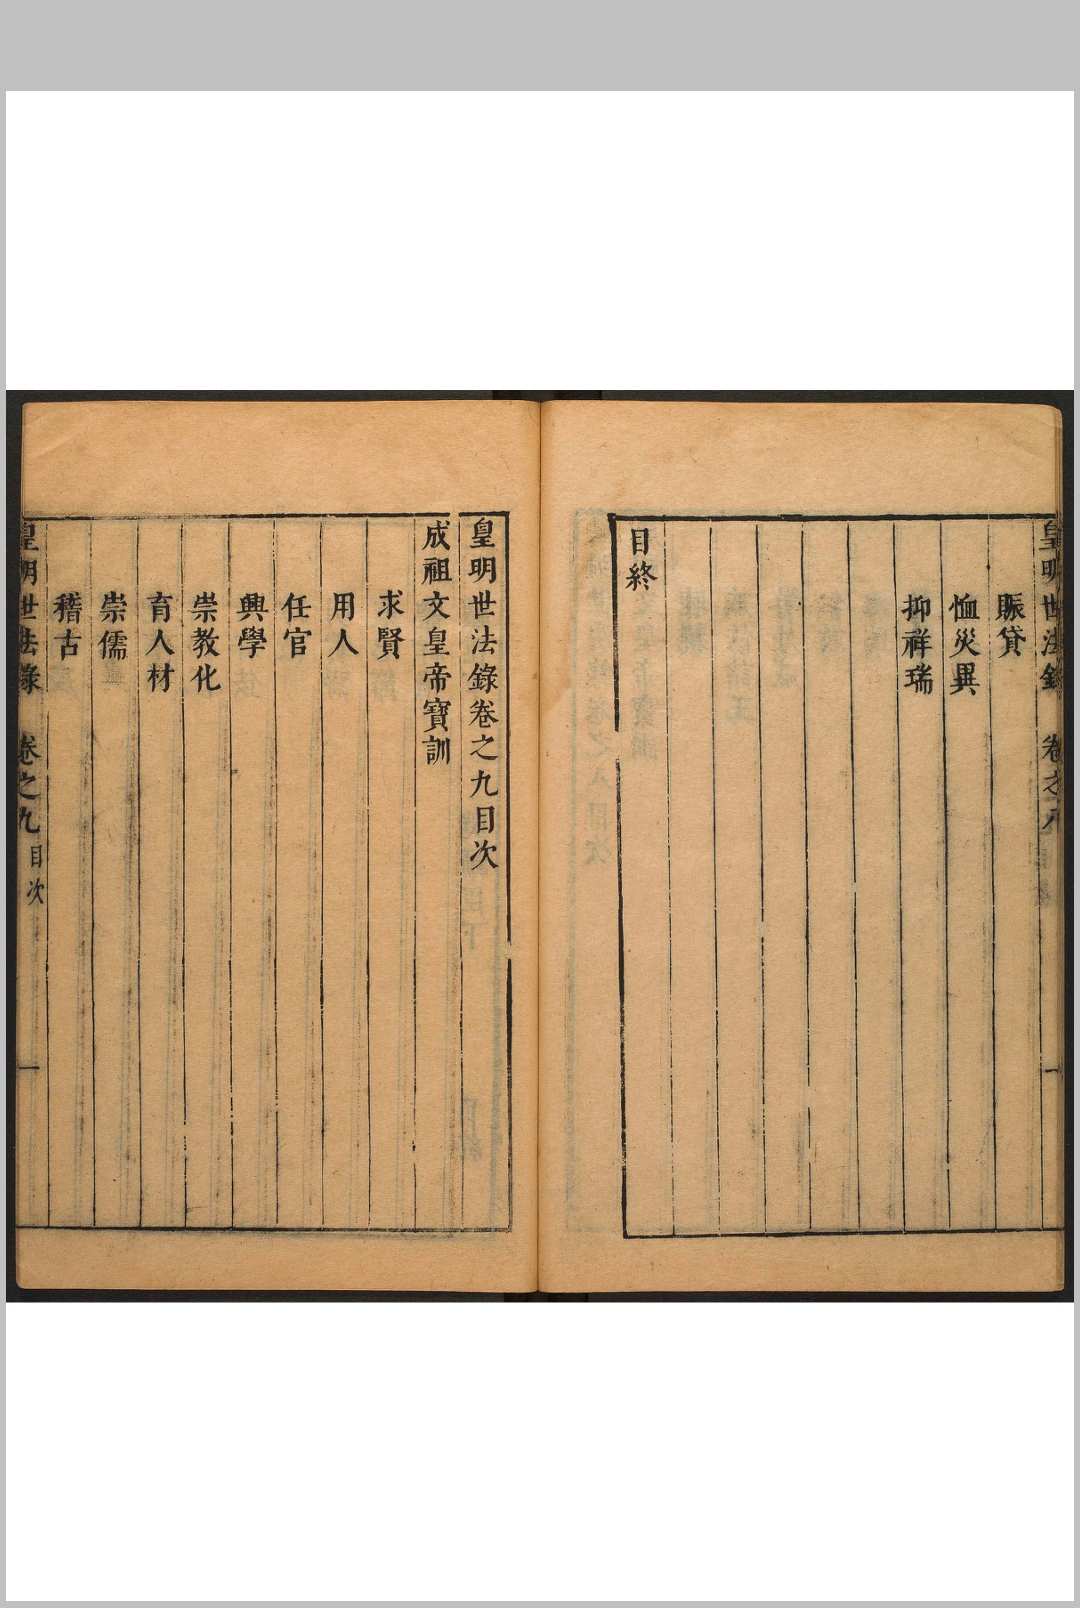 皇明世法錄 卷之八 一
賑貸
恤災異
抑祥瑞
目終
皇明世法錄卷之九目次
成祖文皇帝寶訓
求賢
用人
任官
興學
崇教化
育人材
崇儒
稽古
皇明世法錄 卷之九 目次 一